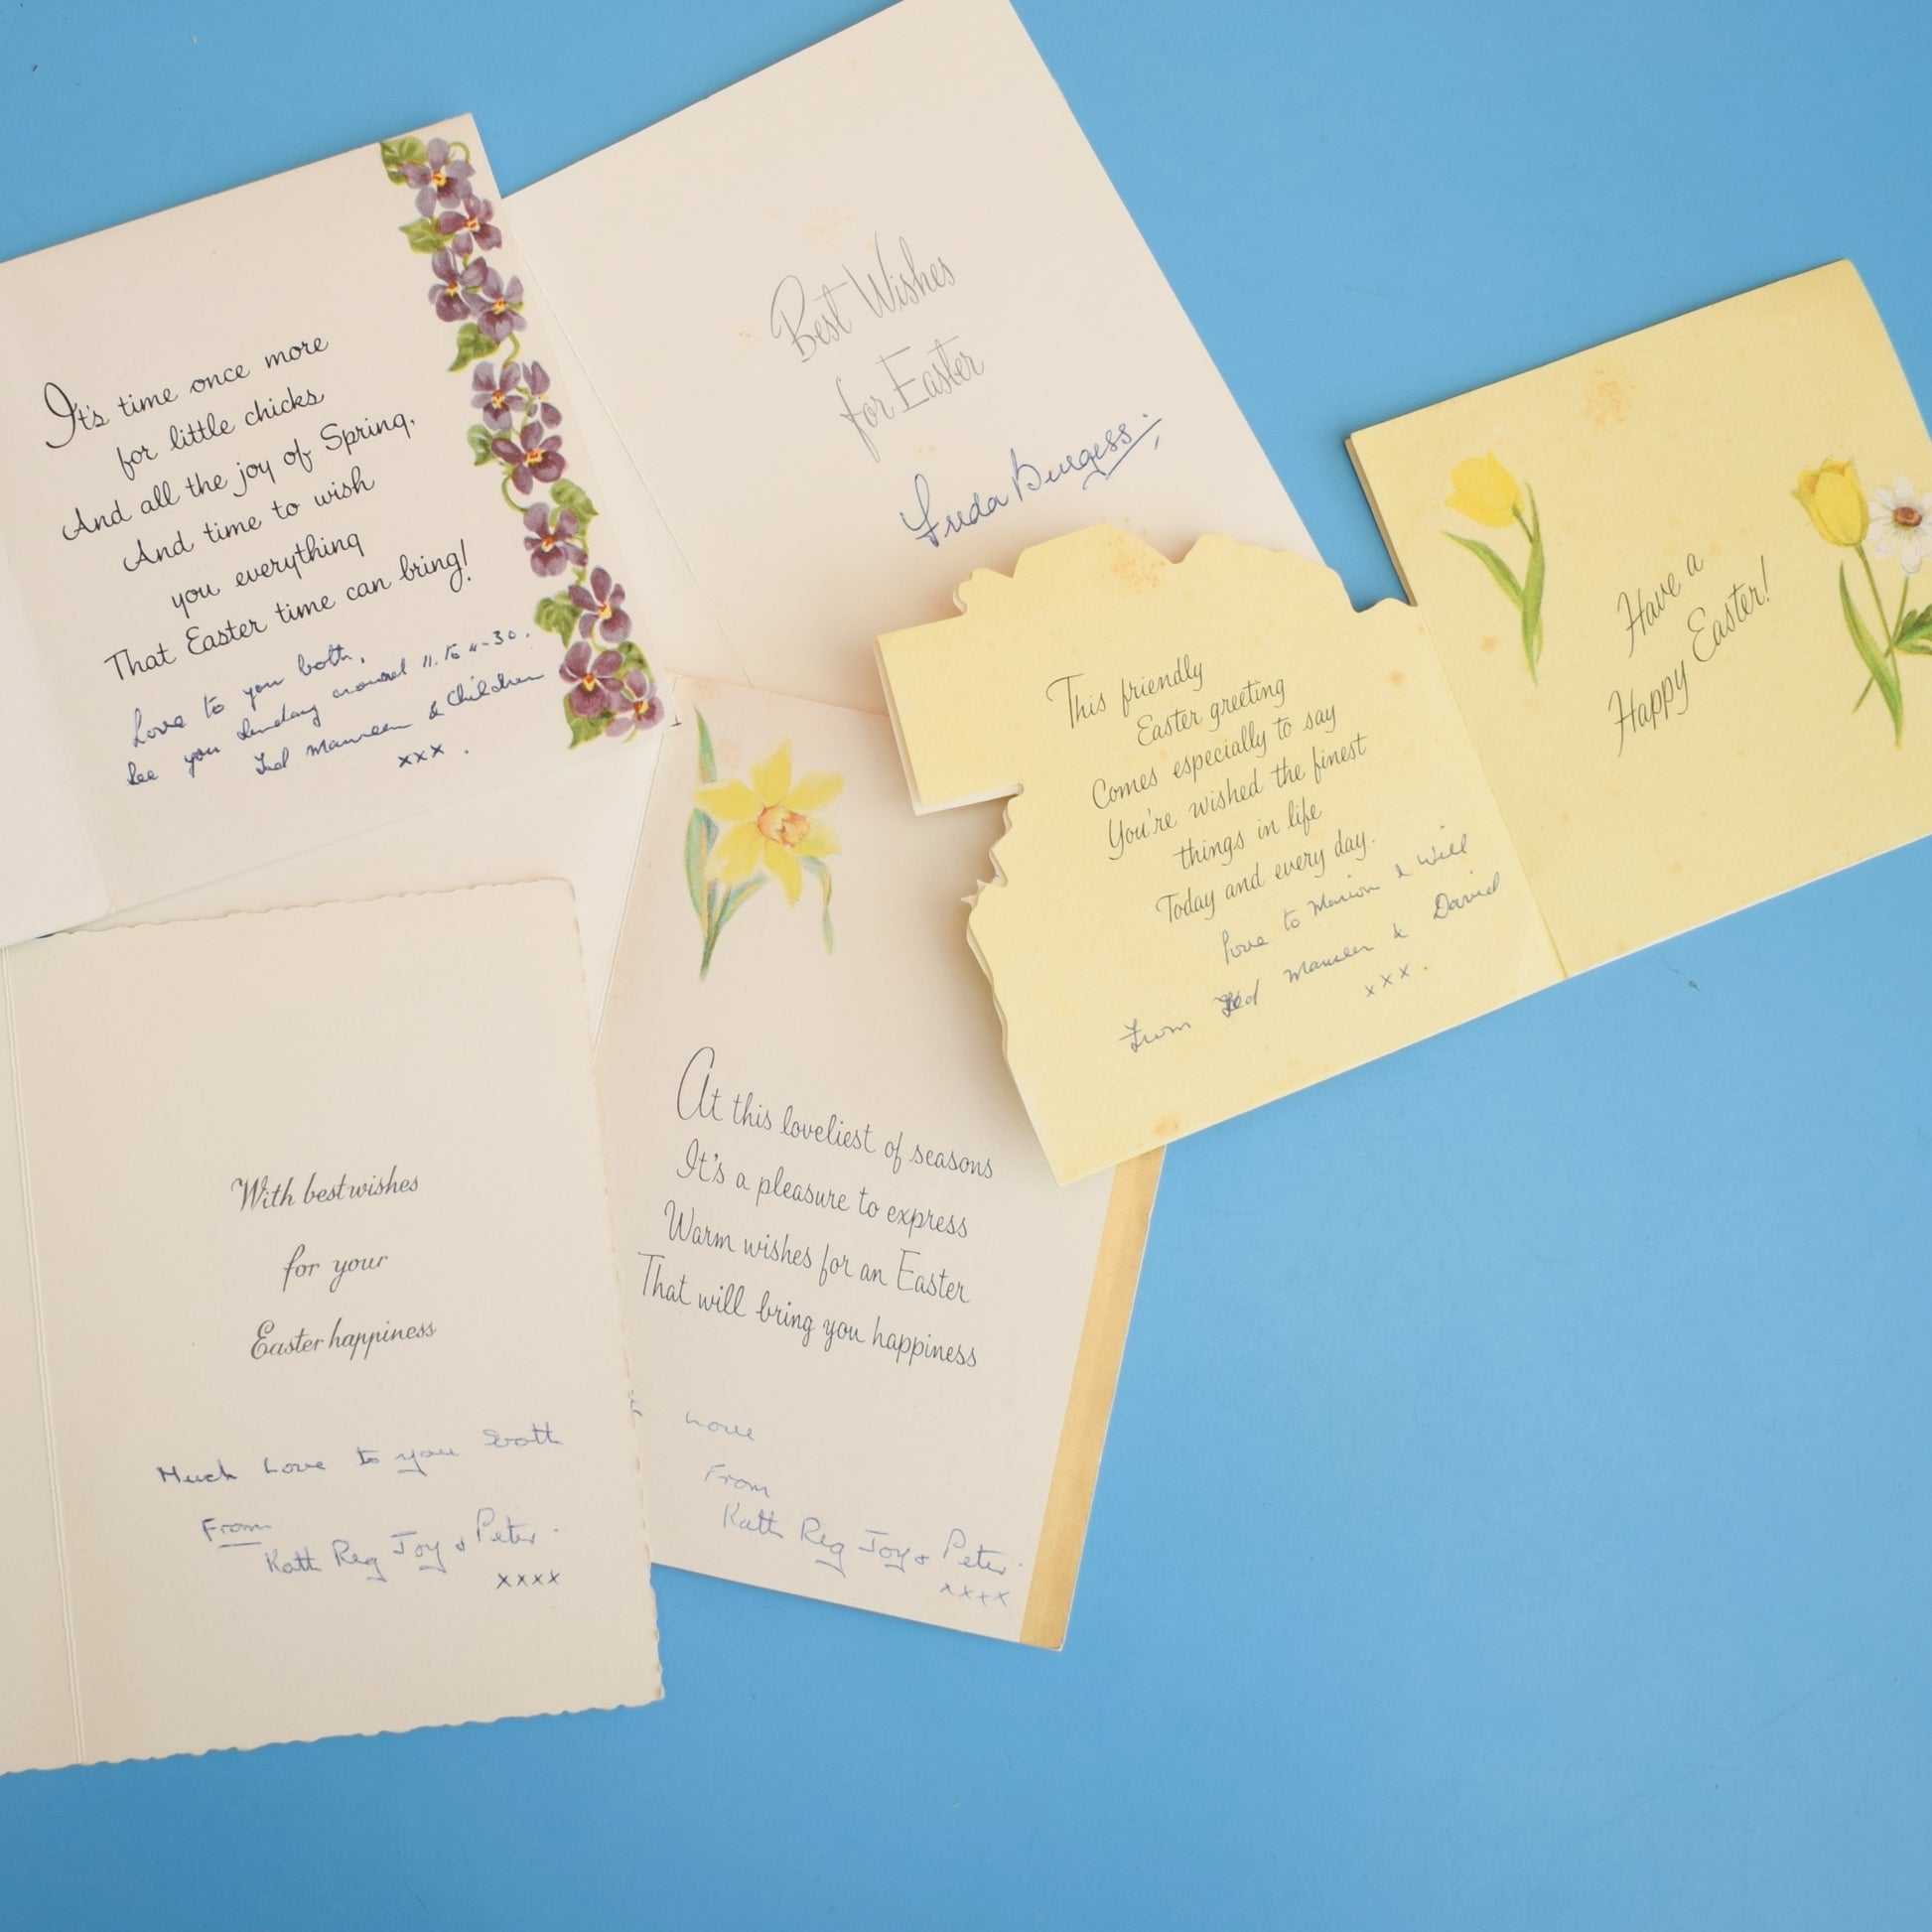 It's time once more
for little chicks
And all the joy of Spring,
And time to wish
you everything
That Easter time can bring!
Love to you both,
See you Sunday around 4. to 4-30.
Ted Maureen & Children
xxx.
Best Wishes
for Easter
Freda Burgess.
This friendly
Easter greeting
Comes especially to say
You're wished the finest
things in life
Today and every day.
Love to Marion & Will
From Ted Maureen & David
xxx.
Have a
Happy Easter!
With best wishes
for your
Easter happiness
Much Love to you both
From
Kath Reg Joy & Peter.
xxxx
At this loveliest of seasons
It's a pleasure to express
Warm wishes for an Easter
That will bring you happiness
Love
From
Kath Reg Joy & Peter.
xxxx